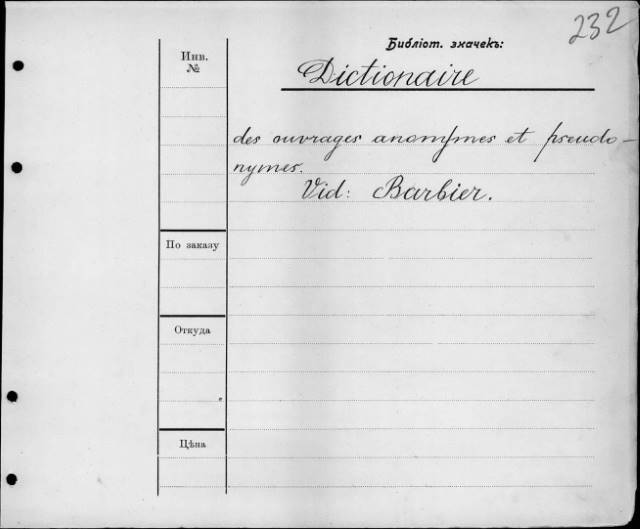 232
Библіот. значекъ:
Инв.
№
Dictionaire
des ouvrages anonymes et pseudo-
nymes.
Vid: Barbier.
По заказу
Откуда
Цѣна